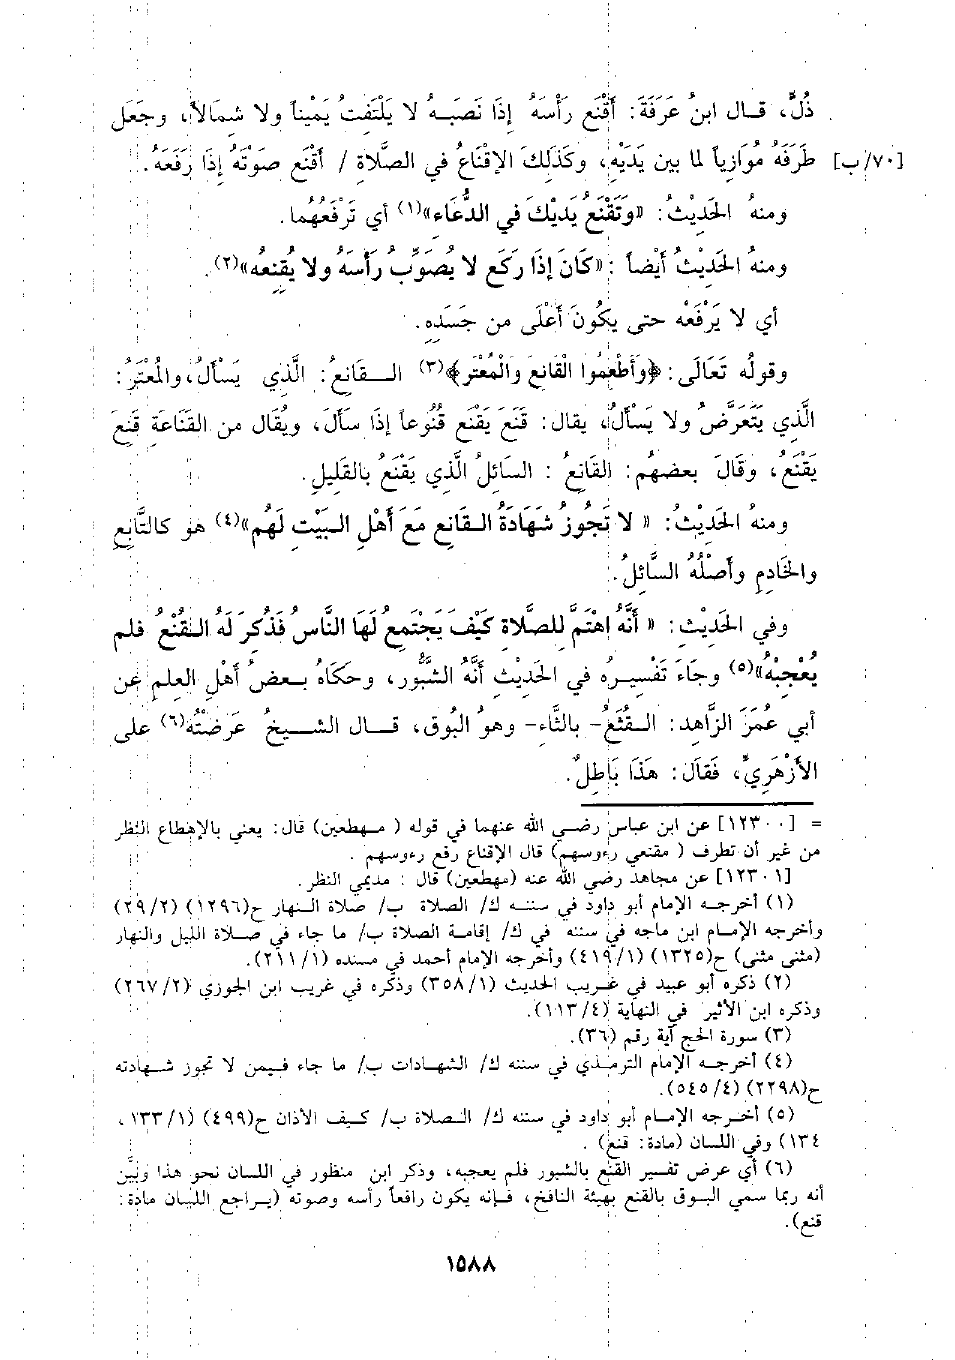 ذُلٌّ، قـال ابنُ عَرَفَةَ: أَقْنَع رَأْسَهُ إِذَا نَصَبَـهُ لا يَلْتَفتُ يَمْيناً ولا شمالاً، وجَعَل
[٧٠/ب] طَرَفَهُ مُوَازِياً لما بين يَدَيْهِ، وكَذَلِكَ الإِقْنَاعُ في الصَّلَاة / أَقْنَع صَوتَهُ إذَا رَفَعَهُ.
ومنهُ الحَديْثُ: «وَتَقْنَعُ يَدَيْكَ في الدُّعَاء»(١) أي تَرْفَعُهُما.
ومنهُ الحَديْثُ أَيْضاً : «كَانَ إِذَا رَكَع لا يُصَوِّبُ رَأْسَهُ ولا يُقنِعه»(٢).
أي لا يَرْفَعْه حتى يكُونَ أَعْلَى من جَسَدِهِ.
وقولُه تَعَالَى: ﴿وَأَطْعِمُوا الْقَانِعَ والْمُعْتَر﴾(٣) الـقَانِعُ: الَّذي يَسْأَلُ،والمُعْتَرُ:
الَّذي يَتَعَرَّضُ ولا يَسْأَلُ، يقال: قَنَعَ يَقْنَع قُنُوعاً إِذَا سَأَلَ، ويُقَال من القَنَاعَة قَنِعَ
يَقْنَعُ، وقَالَ بعضهُم: القَانِعُ : السَائِلُ الَّذي يَقْنَعُ بالقَلِيلِ.
ومنهُ الحَديْثُ: « لا تَجُوزُ شَهَادَةُ القَانِع مَعَ أَهْلِ البَيْتِ لَهُم»(٤) هو كالتَّابِع
والخَادِمِ وأَصْلُهُ السَّائِلُ.
وفي الحَديْثِ: « أَنَّهُ اهْتَمَّ للصَّلاة كَيْفَ يَجْتَمِعُ لَهَا النَّاسُ فَذُكِرَ لَهُ القُنْعُ فلم
يُعْجِبْهُ»(٥) وجَاءَ تَفْسِيرُهُ في الحَديْثِ أَنَّهُ الشَّبُّور، وحكَاهُ بعضُ أَهْلِ العِلمِ عَن
أبي عُمَرَ الزَّاهد: القُثعُ- بالثَّاء- وهوُ البُوق، قـال الشـيخُ عَرَضْتُه(٦) على
الأَزْهَرِيِّ، فَقَالَ: هَذَا بَاطلٌ.
= [١٢٣٠٠] عن ابن عباس رضي الله عنهما في قوله ( مهطعين) قال: يعني بالإهطاع النظر
من غير أن تطرف ( مقنعي رءوسهم) قال الإقناع رفع رءوسهم .
[١٢٣٠١] عن مجاهد رضي الله عنه (مهطعين) قال : مديمي النظر.
(١) أخرجه الإمام أبو داود في سننه ك/ الصلاة ب/ صلاة النهار ح(١٢٩٦) (٢٩/٢)
وأخرجه الإمام ابن ماجه في سننه في ك/ إقامة الصلاة ب/ ما جاء في صلاة الليل والنهار
(مثنى مثنى) ح(١٣٢٥) (٤١٩/١) وأخرجه الإمام أحمد في مسنده (٢١١/١).
(٢) ذكره أبو عبيد في غريب الحديث (٣٥٨/١) وذكره في غريب ابن الجوزي (٢٦٧/٢)
وذكره ابن الأثير في النهاية (١١٣/٤).
(٣) سورة الحج آية رقم (٣٦).
(٤) أخرجه الإمام الترمذي في سننه ك/ الشهادات ب/ ما جاء فيمن لا تجوز شهادته
ح(٢٢٩٨) (٥٤٥/٤).
(٥) أخرجه الإمام أبو داود في سننه ك/ الصلاة ب/ كيف الأذان ح(٤٩٩) (١٣٣/١ ،
١٣٤) وفي اللسان (مادة: قنع) .
(٦) أي عرض تفسير القنع بالشبور فلم يعجبه، وذكر ابن منظور في اللسان نحو هذا وبَيَّن
أنه ربما سمي البوق بالقنع بهيئة النافخ، فإنه يكون رافعاً رأسه وصوته (يراجع اللسان مادة:
قنع).
١٥٨٨